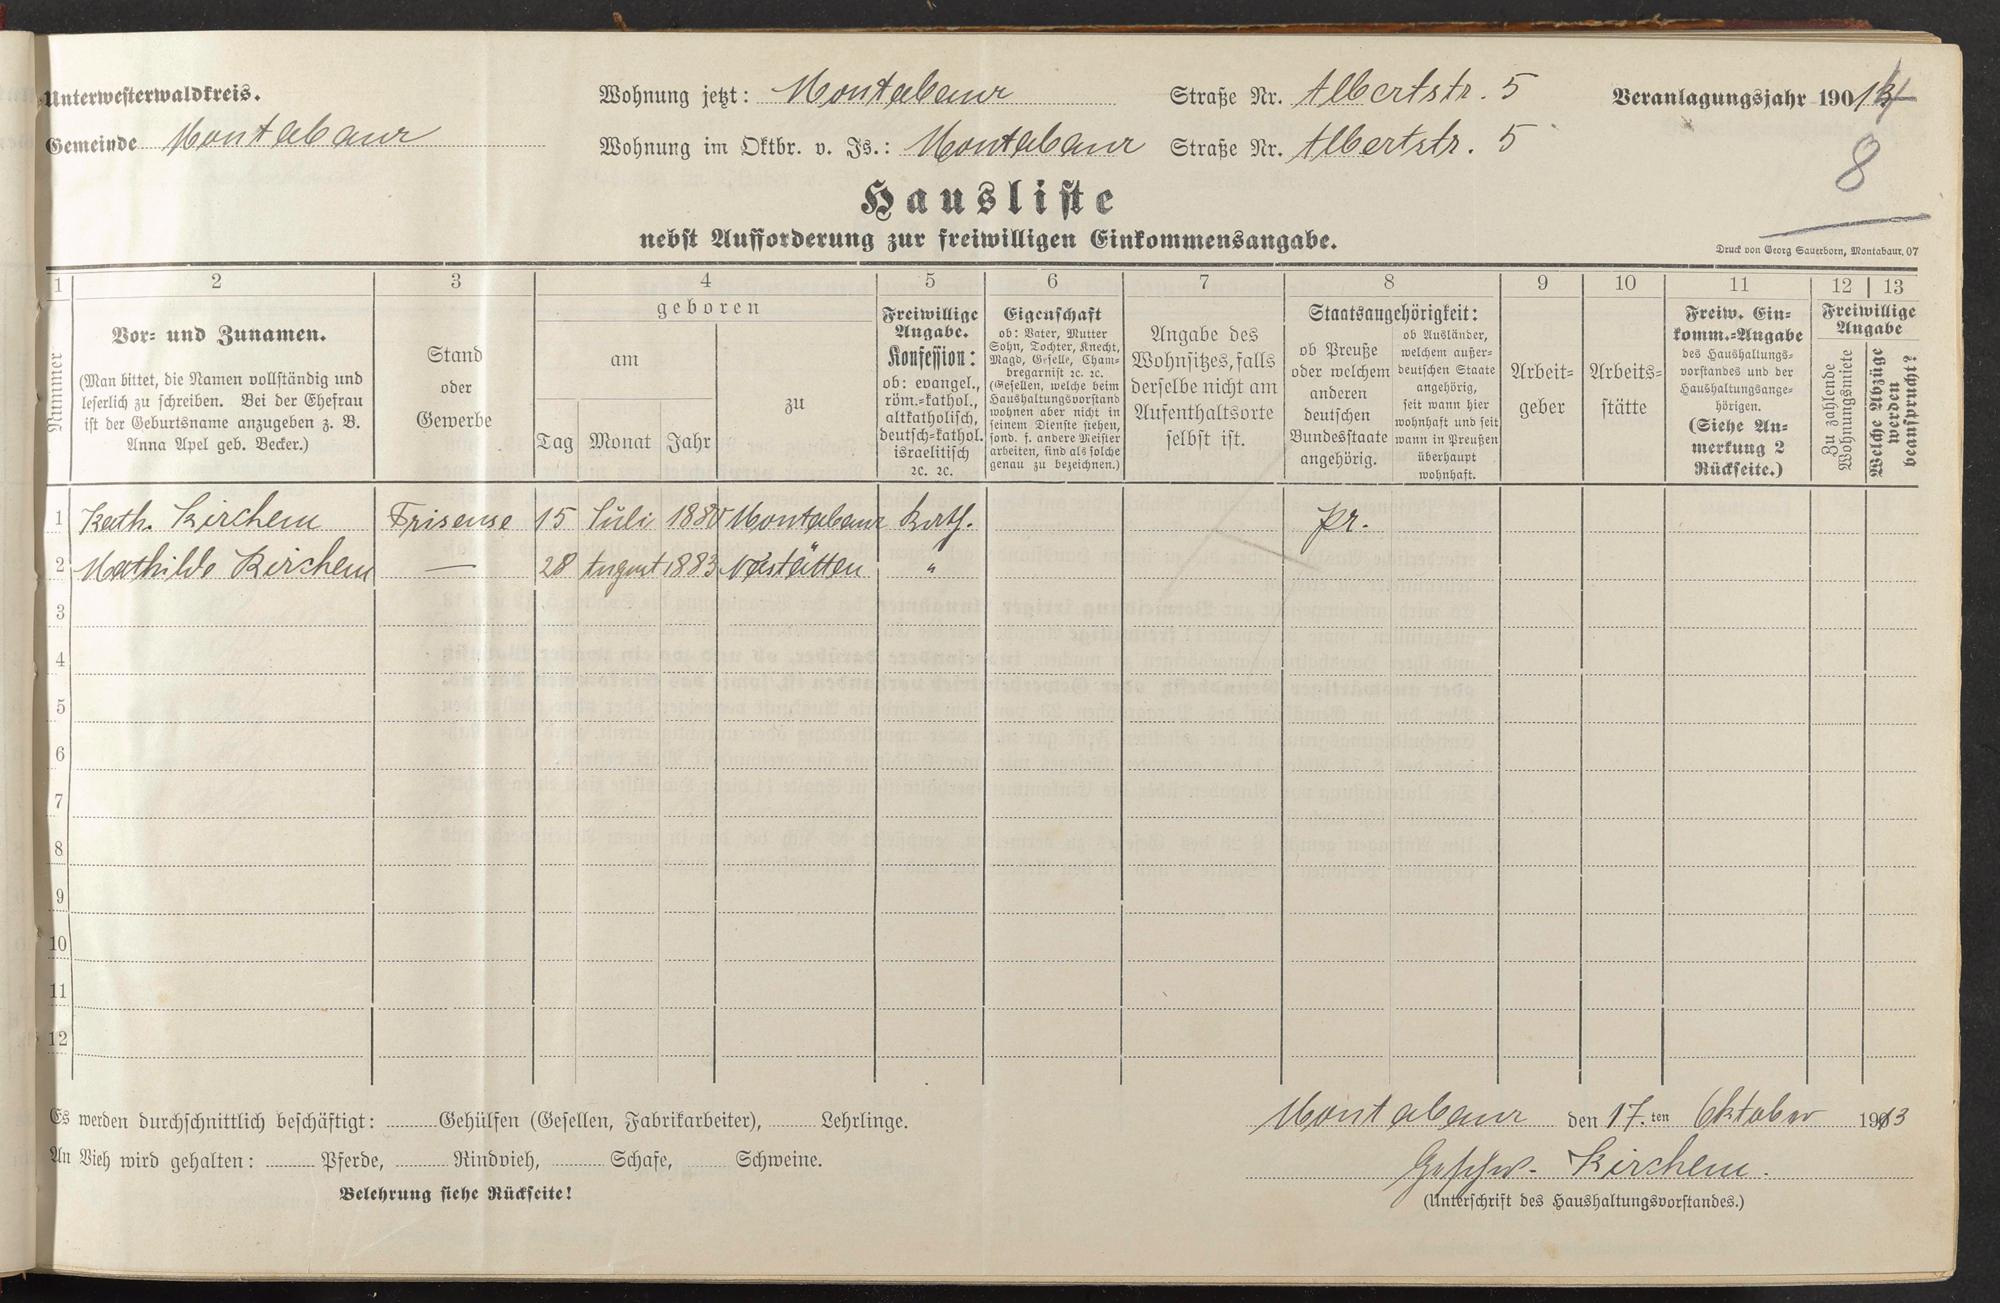 Unterwesterwaldkreis.
Gemeinde Montabaur
Wohnung jetzt: Montabaur Straße Nr. Albertstr. 5
Wohnung im Oktbr. v. Js.: Montabaur Straße Nr. Albertstr. 5
Veranlagungsjahr 1914
8
Hausliste
nebst Aufforderung zur freiwilligen Einkommensangabe.
Druck von Georg Sauerborn, Montabaur. 07
1 2 3 4 5 6 7 8 9 10 11 12 13
Nummer
Vor- und Zunamen.
(Man bittet, die Namen vollständig und
leserlich zu schreiben. Bei der Ehefrau
ist der Geburtsname anzugeben z. B.
Anna Apel geb. Becker.)
Stand
oder
Gewerbe
geboren
am
zu
Tag Monat Jahr
Freiwillige
Angabe.
Konfession:
ob: evangel.,
röm.-kathol.,
altkatholisch,
deutsch-kathol.
israelitisch
ꝛc. ꝛc.
Eigenschaft
ob: Vater, Mutter
Sohn, Tochter, Knecht,
Magd, Geselle, Cham-
bregarnist ꝛc. ꝛc.
(Gesellen, welche beim
Haushaltungsvorstand
wohnen aber nicht in
seinem Dienste stehen,
sond. f. andere Meister
arbeiten, sind als solche
genau zu bezeichnen.)
Angabe des
Wohnsitzes, falls
derselbe nicht am
Aufenthaltsorte
selbst ist.
Staatsangehörigkeit:
ob Preuße
oder welchem
anderen
deutschen
Bundesstaate
angehörig.
ob Ausländer,
welchem außer-
deutschen Staate
angehörig,
seit wann hier
wohnhaft und seit
wann in Preußen
überhaupt
wohnhaft.
Arbeit-
geber
Arbeits-
stätte
Freiw. Ein-
komm.-Angabe
des Haushaltungs-
vorstandes und der
Haushaltungsange-
hörigen.
(Siehe An-
merkung 2
Rückseite.)
Freiwillige
Angabe
Zu zahlende
Wohnungsmiete
Welche Abzüge
werden
beansprucht?
1 Kath. Kirchem Friseuse 15 Juli 1880 Montabaur Kath. Pr.
2 Mathilde Kirchem — 28 August 1883 Nastätten "
3
4
5
6
7
8
9
10
11
12
Es werden durchschnittlich beschäftigt: Gehülfen (Gesellen, Fabrikarbeiter), Lehrlinge.
An Vieh wird gehalten: Pferde, Rindvieh, Schafe, Schweine.
Belehrung siehe Rückseite!
Montabaur den 17.ten Oktober 1913
Geschw. Kirchem.
(Unterschrift des Haushaltungsvorstandes.)